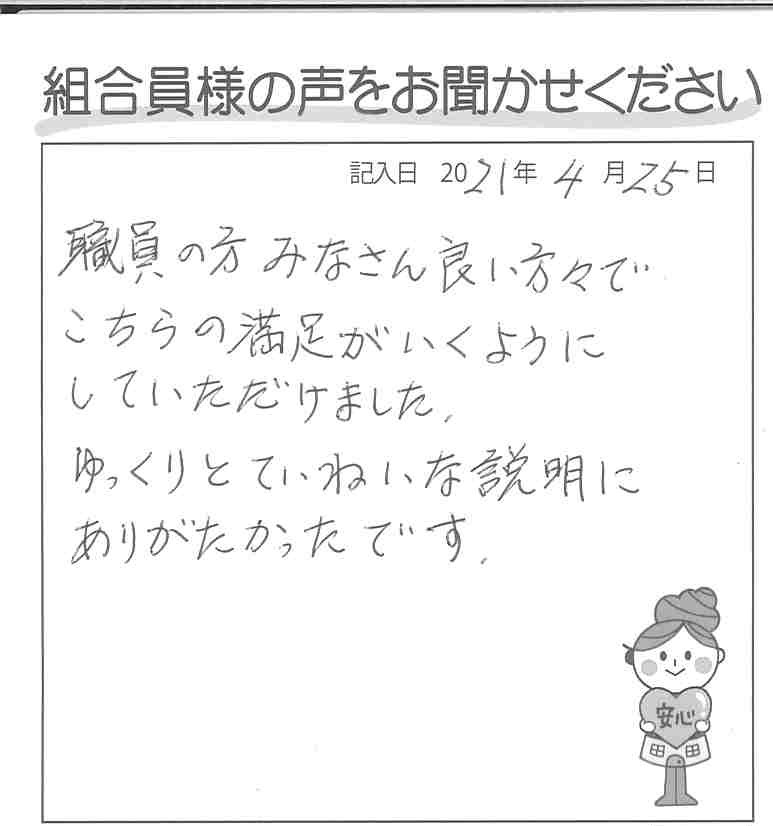 組合員様の声をお聞かせください
記入日 2021年 4月25日
職員の方みなさん良い方々で
こちらの満足がいくように
していただけました。
ゆっくりとていねいな説明に
ありがたかったです。
安心